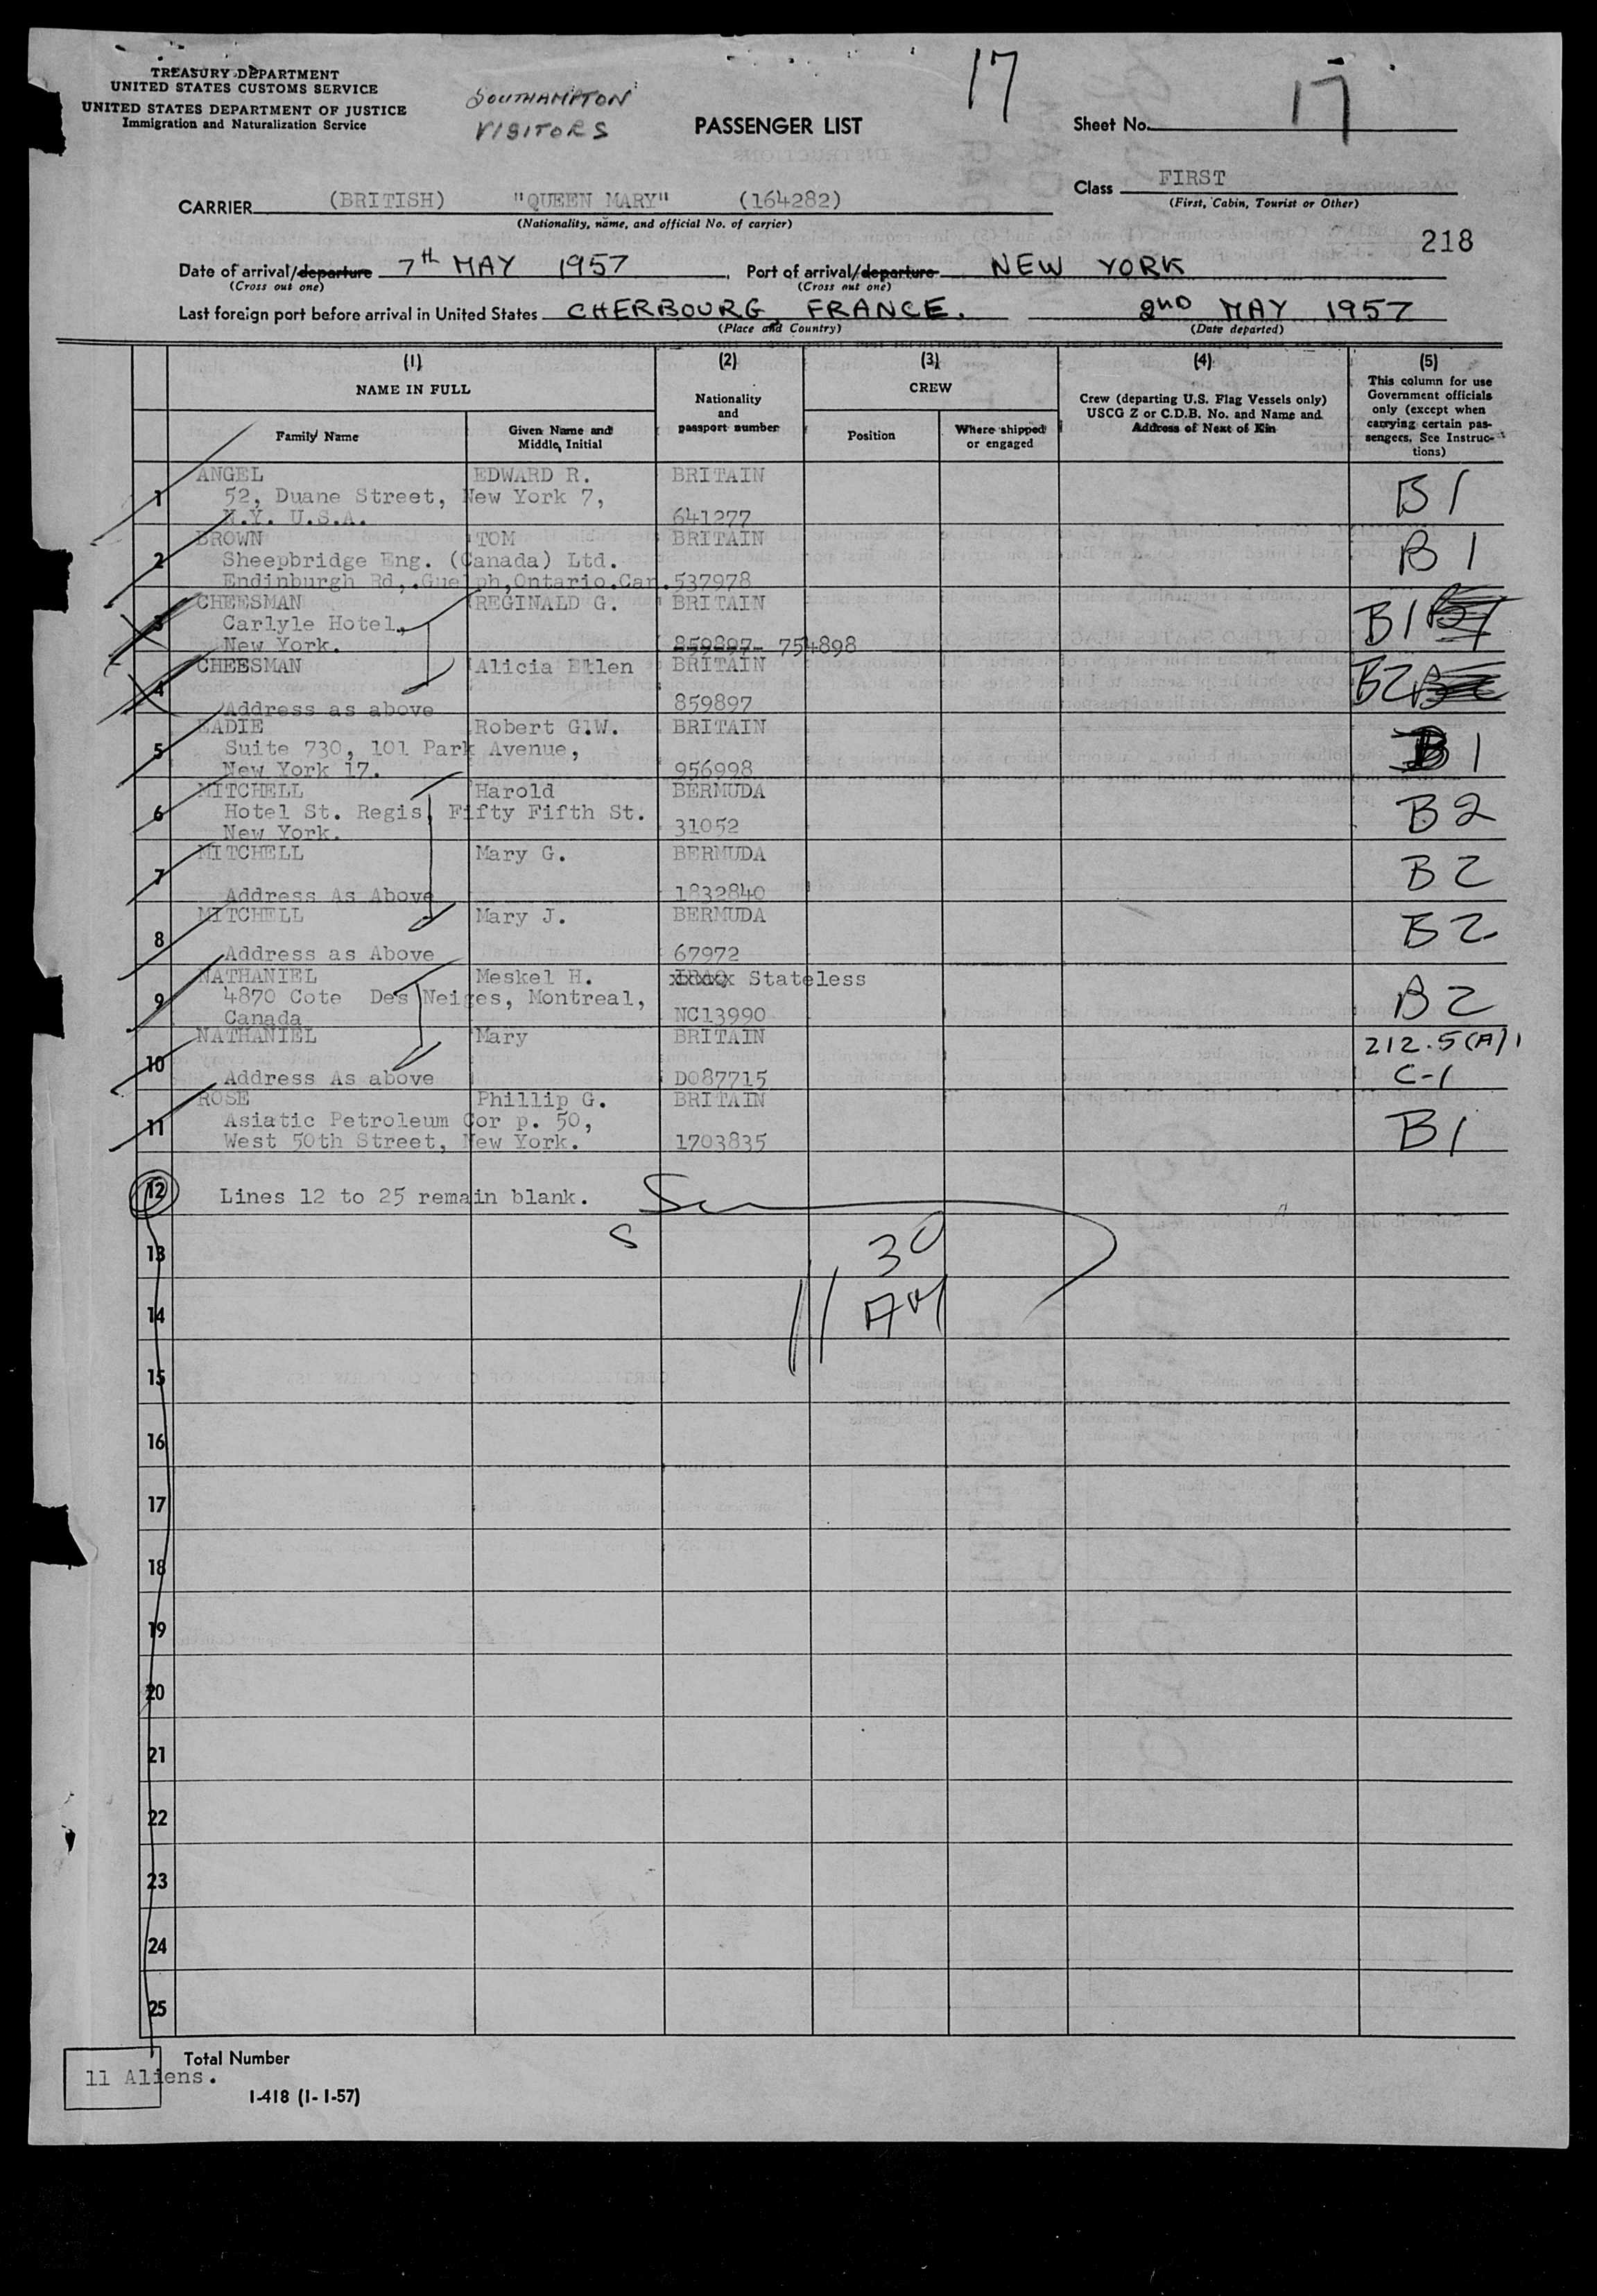 TREASURY DEPARTMENT
UNITED STATES CUSTOMS SERVICE
UNITED STATES DEPARTMENT OF JUSTICE
Immigration and Naturalization Service
SOUTHAMPTON
VISITORS
17
PASSENGER LIST
Sheet No. 17
Class FIRST
(First, Cabin, Tourist or Other)
CARRIER (BRITISH) "QUEEN MARY" (164282)
(Nationality, name, and official No. of carrier)
218
Date of arrival/departure 7th MAY 1957, Port of arrival/departure NEW YORK
(Cross out one) (Cross out one)
Last foreign port before arrival in United States CHERBOURG, FRANCE. 2ND MAY 1957
(Place and Country) (Date departed)
(1) (2) (3) (4) (5)
NAME IN FULL
Family Name
Given Name and Middle Initial
Nationality and passport number
CREW
Position
Where shipped or engaged
Crew (departing U.S. Flag Vessels only)
USCG Z or C.D.B. No. and Name and
Address of Next of Kin
This column for use
Government officials
only (except when
carrying certain pas-
sengers, See Instruc-
tions)
1 ANGEL EDWARD R. BRITAIN B1
52, Duane Street, New York 7,
N.Y. U.S.A. 641277
2 BROWN TOM BRITAIN B1
Sheepbridge Eng. (Canada) Ltd.
Endinburgh Rd,.Guelph,Ontario.Can. 537978
3 CHEESMAN REGINALD G. BRITAIN B1
Carlyle Hotel,
New York. 859897 754898
4 CHEESMAN Alicia Ellen BRITAIN B2
Address as above 859897
5 EADIE Robert G.W. BRITAIN B1
Suite 730, 101 Park Avenue,
New York 17. 956998
6 MITCHELL Harold BERMUDA B2
Hotel St. Regis, Fifty Fifth St.
New York. 31052
7 MITCHELL Mary G. BERMUDA B2
Address As Above 1832840
8 MITCHELL Mary J. BERMUDA B2
Address as Above 67972
9 NATHANIEL Meskel H. IRAQ Stateless B2
4870 Cote Des Neiges, Montreal,
Canada NC13990
10 NATHANIEL Mary BRITAIN 212.5(A)1
Address As above D087715 C-1
11 ROSE Phillip G. BRITAIN B1
Asiatic Petroleum Cor p. 50,
West 50th Street, New York. 1703835
12 Lines 12 to 25 remain blank.
13
14
11 30 AM
15
16
17
18
19
20
21
22
23
24
25
Total Number
11 Aliens.
I-418 (1-1-57)